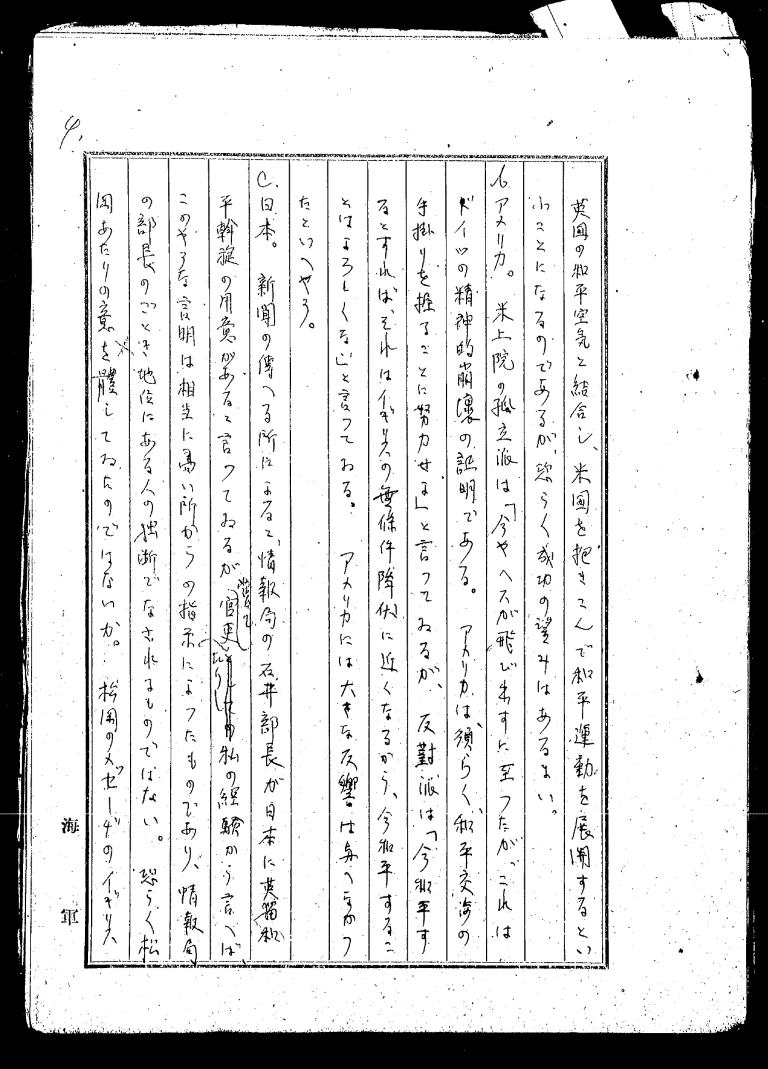 4.
英国の和平空気と結合し、米国を抱きこんで和平運動を展開するとい
ふことになるのであるが、恐らく成功の望みはあるまい。
b アメリカ。 米上院の孤立派は「今やヘスが飛び出すに至つたが、これは
ドイツの精神的崩壊の証明である。 アメリカは、須らく、和平交渉の
手掛りを握ることに努力せよ」と言つてゐるが、反對派は「今和平す
るとすれば、それはイギリスの無條件降伏に近くなるから、今和平するこ
とはよろしくない」と言つてゐる。 アメリカには大きな反響は与へなかつ
たといへやう。
C. 日本。 新聞の傳へる所によると、情報局の石井部長が日本に英独和
平斡旋の用意があると言つてゐるが、官吏たりし私の経験から言へば、
このやうな言明は相当に高い所からの指示によつたものであり、情報局
の部長のごとき地位にある人の独断でなされるものではない。 恐らく松
岡あたりの意を體してゐたのではないか。 松岡のメッセーヂのイギリス
海軍